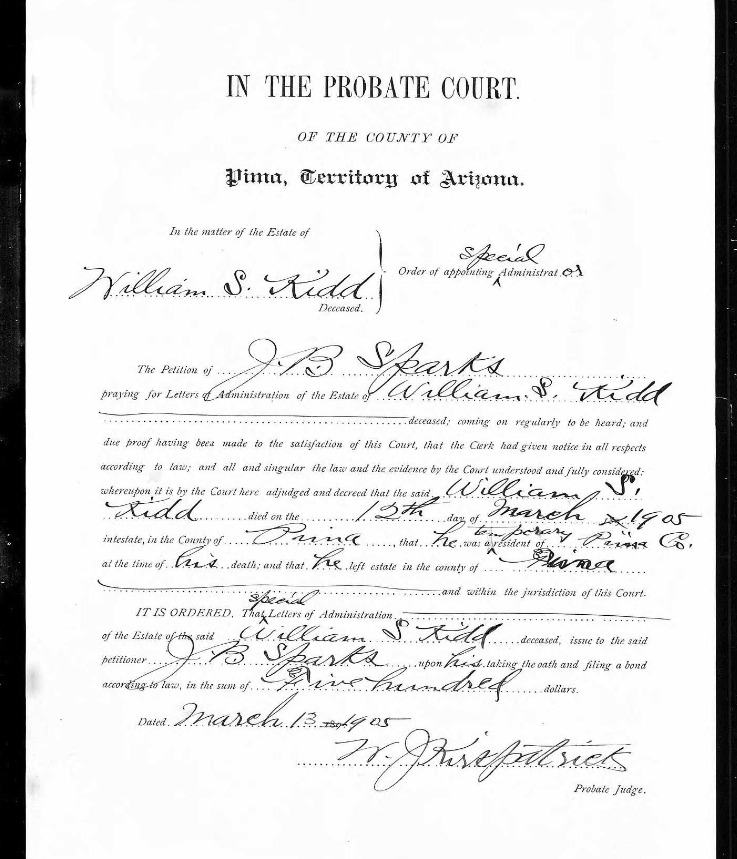 IN THE PROBATE COURT.
OF THE COUNTY OF
Pima, Territory of Arizona.
In the matter of the Estate of
William S. Kidd
Deceased.
special
Order of appointing Administrat or
The Petition of J. B. Sparks
praying for Letters of Administration of the Estate of William S. Kidd
deceased; coming on regularly to be heard; and
due proof having been made to the satisfaction of this Court, that the Clerk had given notice in all respects
according to law; and all and singular the law and the evidence by the Court understood and fully considered;
whereupon it is by the Court here adjudged and decreed that the said William S.
Kidd died on the 12th day of March 1905
temporary
intestate, in the County of Pima, that he was a resident of Pima Co.
at the time of his death; and that he left estate in the county of Pima
and within the jurisdiction of this Court.
special
IT IS ORDERED, That Letters of Administration
of the Estate of the said William S Kidd deceased, issue to the said
petitioner J B Sparks upon his taking the oath and filing a bond
according to law, in the sum of Five hundred dollars.
Dated March 13 1905
W. J Kirkpatrick
Probate Judge.